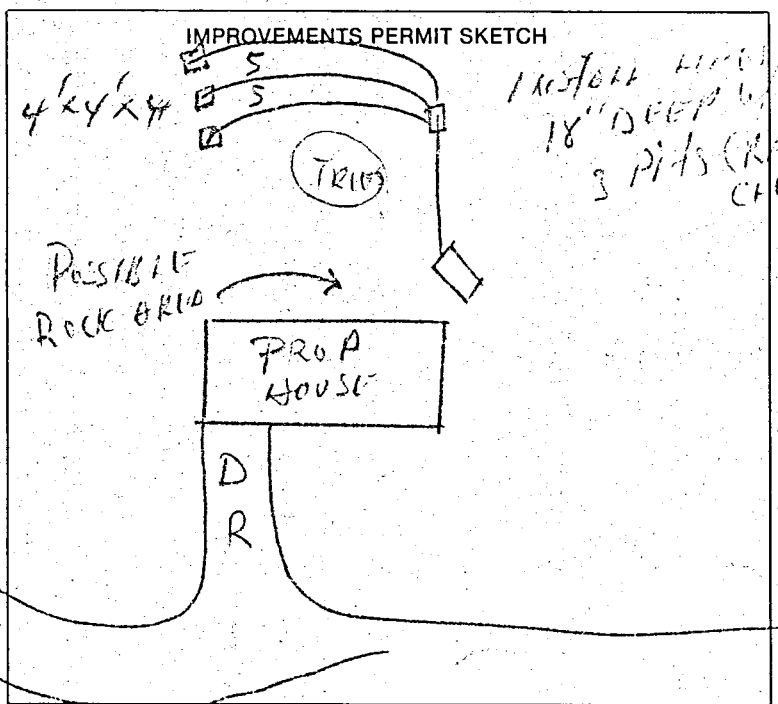 IMPROVEMENTS PERMIT SKETCH
5
5
4'x4'x4
INSTALL
18" DEEP
3 PITS
POSSIBLE
ROCK AREA
PROP
HOUSE
D
R